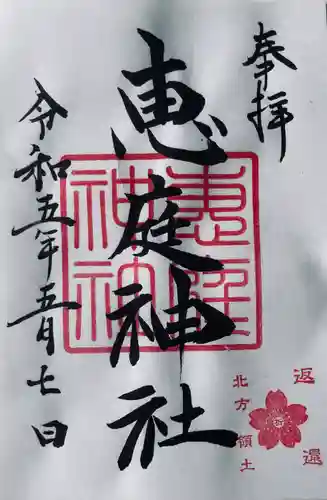 奉拝
恵庭神社
令和五年五月七日
返還
北方領土